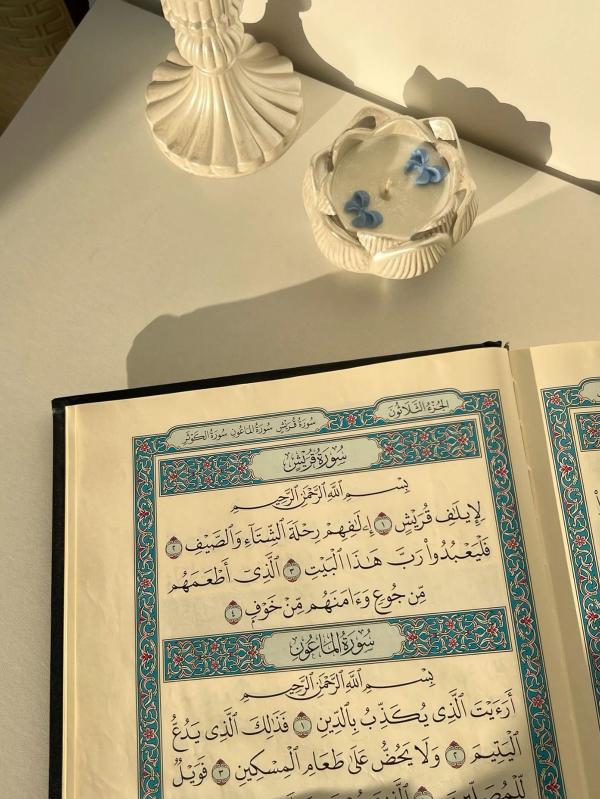 الجُزْءُ الثَّلَاثُونَ
سُورَةُ قُرَيْشٍ سُورَةُ المَاعُونِ سُورَةُ الكَوْثَرِ
سُورَةُ قُرَيْشٍ
بِسْمِ ٱللَّهِ ٱلرَّحْمَٰنِ ٱلرَّحِيمِ
لِإِيلَٰفِ قُرَيْشٍ ١ إِۦلَٰفِهِمْ رِحْلَةَ ٱلشِّتَآءِ وَٱلصَّيْفِ ٢
فَلْيَعْبُدُوا۟ رَبَّ هَٰذَا ٱلْبَيْتِ ٣ ٱلَّذِىٓ أَطْعَمَهُم
مِّن جُوعٍ وَءَامَنَهُم مِّنْ خَوْفٍۭ ٤
سُورَةُ المَاعُونِ
بِسْمِ ٱللَّهِ ٱلرَّحْمَٰنِ ٱلرَّحِيمِ
أَرَءَيْتَ ٱلَّذِى يُكَذِّبُ بِٱلدِّينِ ١ فَذَٰلِكَ ٱلَّذِى يَدُعُّ
ٱلْيَتِيمَ ٢ وَلَا يَحُضُّ عَلَىٰ طَعَامِ ٱلْمِسْكِينِ ٣ فَوَيْلٌ
لِّلْمُصَلِّينَ ٱلَّذِينَ